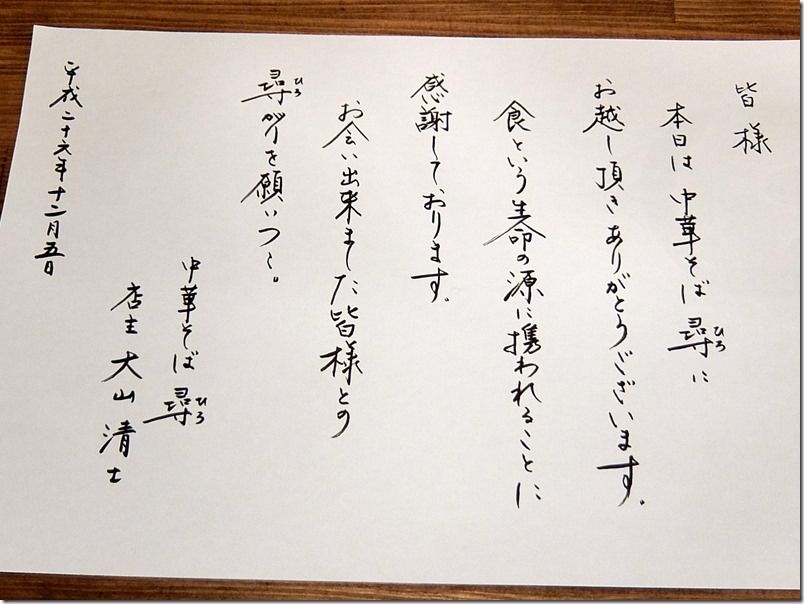 皆様
本日は中華そば 尋に
ひろ
お越し頂きありがとうございます。
食という生命の源に携われることに
感謝しております。
お会い出来ました皆様との
尋がりを願いつゝ。
ひろ
中華そば 尋
ひろ
店主 大山 清士
平成二十六年十二月五日